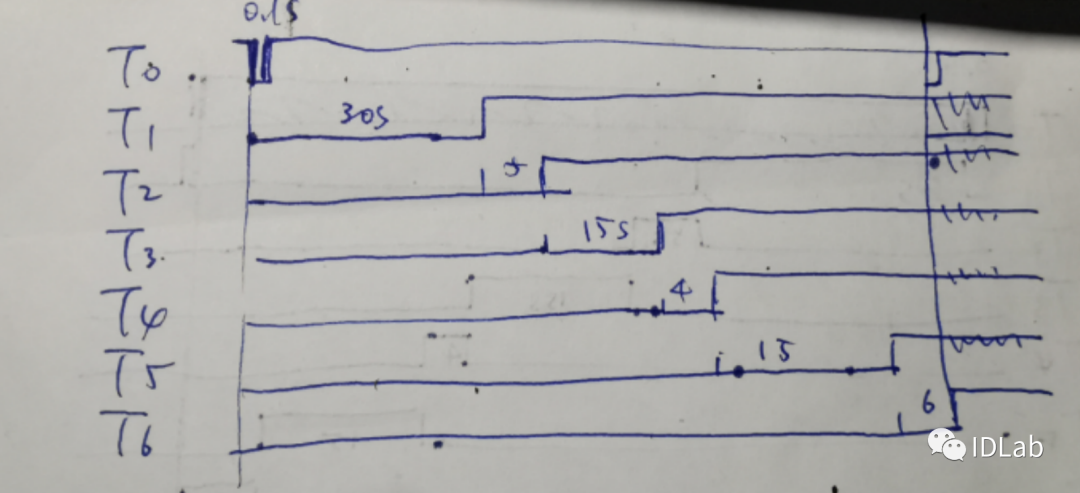 0.1S
T0
T1 30S
T2
T3. 15S
T4 4
T5 15
T6 6
IDLab